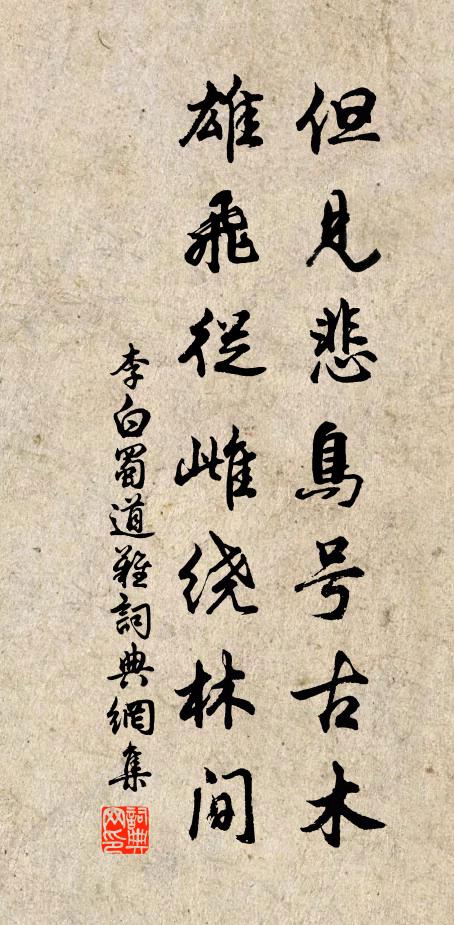 但见悲鳥号古木
雄飛從雌绕林間
李白蜀道難詞典網集
詞典网印